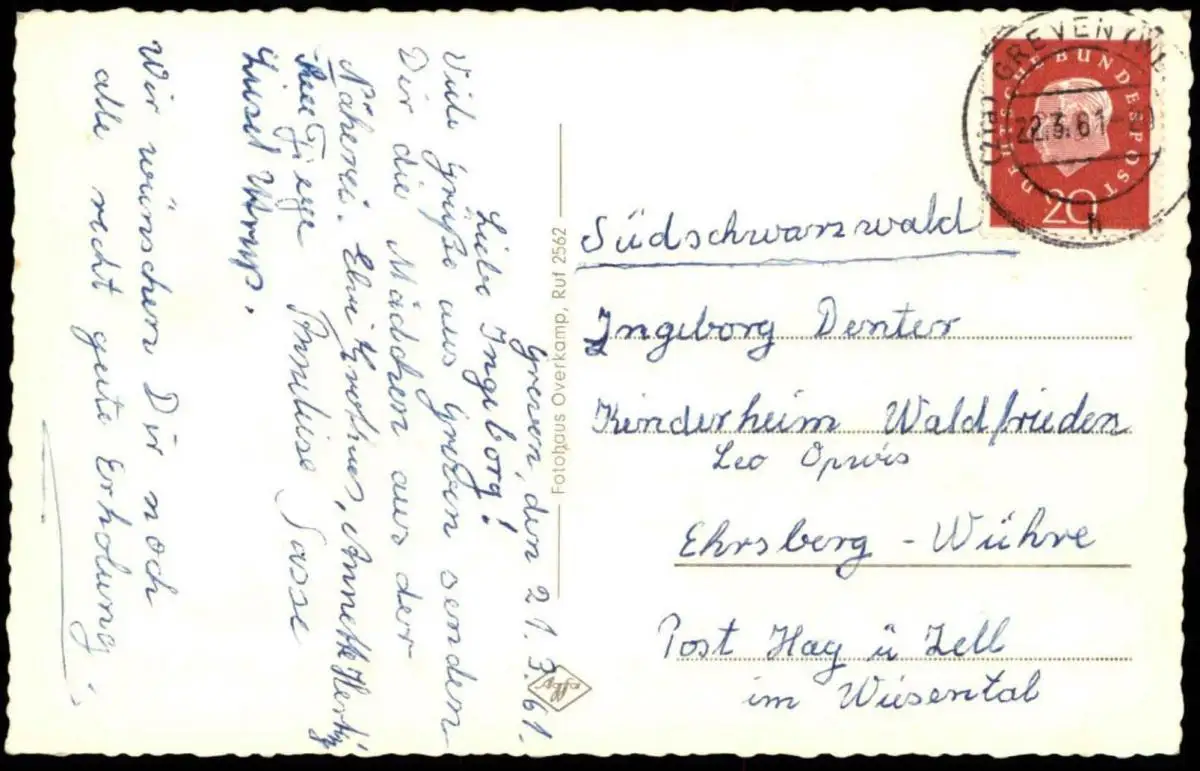 Greven, den 21.3.61.
Liebe Ingeborg!
Viele Grüße aus Greven senden
Dir die Mädchen aus der
Näherei. Elvi Grothues, Annette Hertig
Tiege Annliese Sasse
Liesel
Wir wünschen Dir noch
alle recht gute Erholung
Fotohaus Overkamp, Ruf 2562
(21a) GREVEN (WE
22.3.61
h
DEUTSCHE BUNDESPOST
20
Südschwarzwald
Ingeborg Denter
Kinderheim Waldfrieden
Leo Opwis
Ehrsberg - Wühre
Post Hag ü Zell
im Wiesental